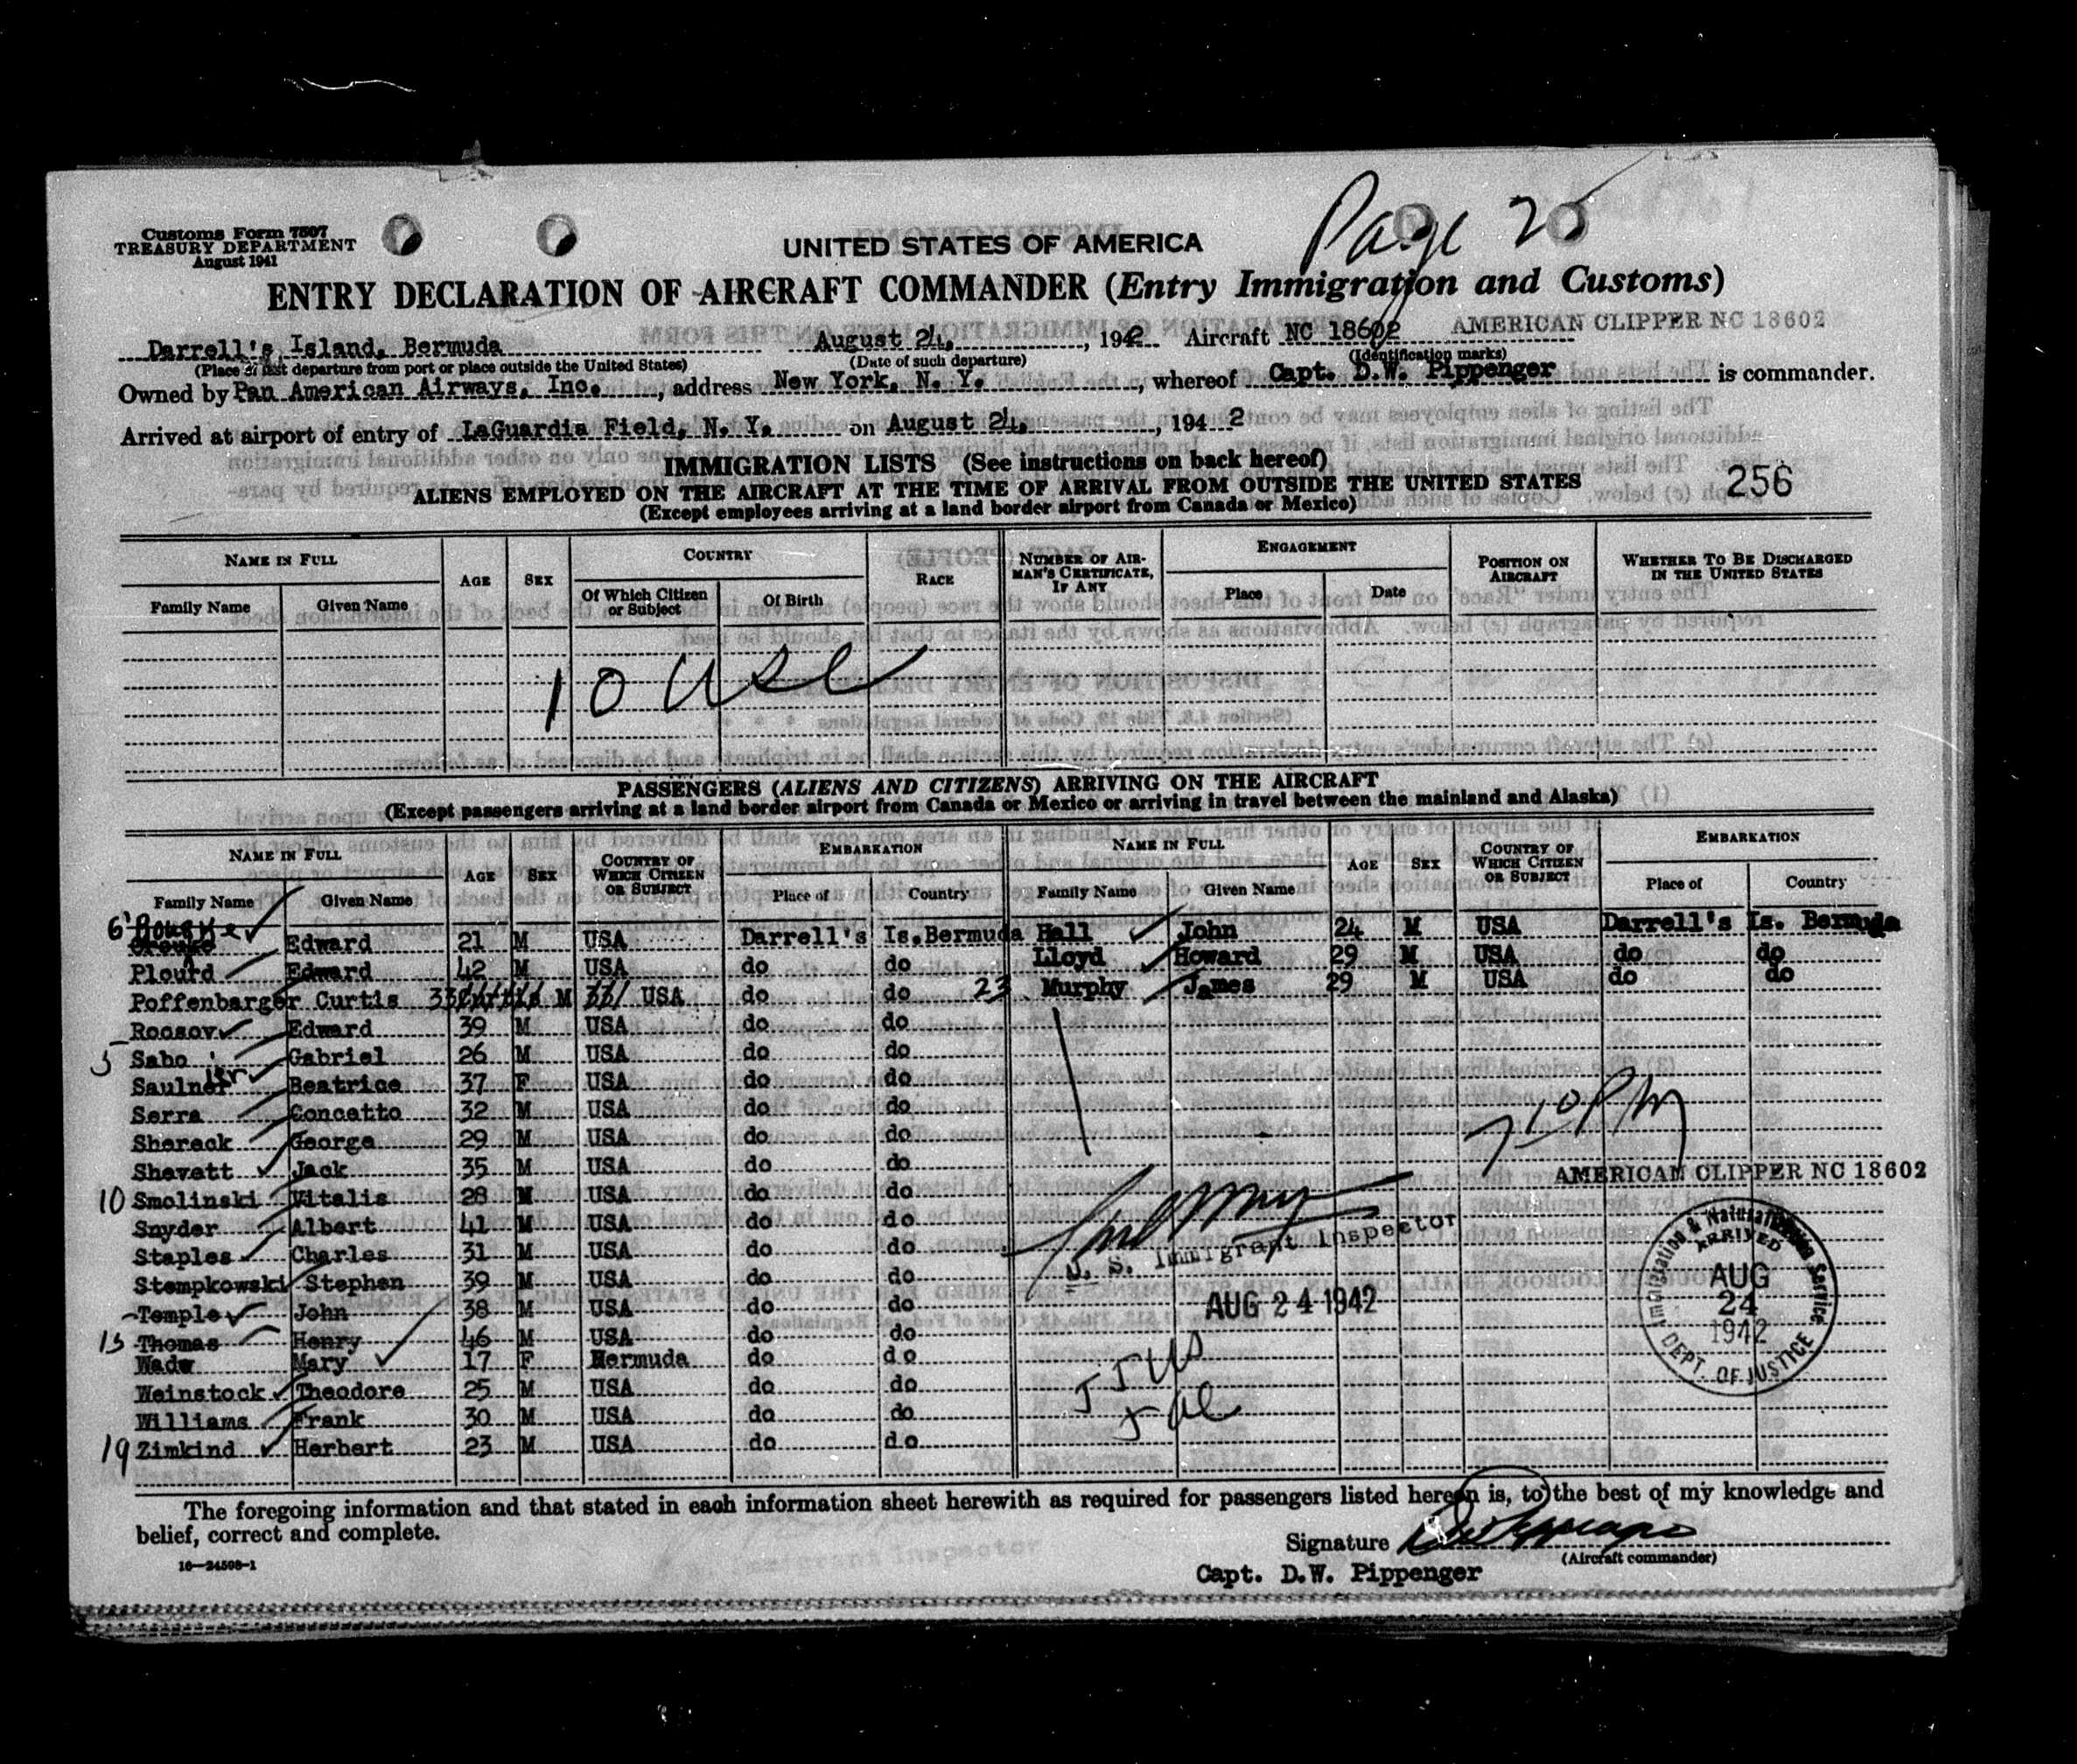 Page 25
Customs Form 7507
TREASURY DEPARTMENT
August 1941
UNITED STATES OF AMERICA
ENTRY DECLARATION OF AIRCRAFT COMMANDER (Entry Immigration and Customs)
Darrell's Island, Bermuda August 24, 1942 Aircraft NC 18602 AMERICAN CLIPPER NC 18602
(Place of last departure from port or place outside the United States) (Date of such departure) (Identification marks)
Owned by Pan American Airways, Inc., address New York, N. Y., whereof Capt. D.W. Pippenger is commander.
Arrived at airport of entry of LaGuardia Field, N. Y. on August 24, 1942
IMMIGRATION LISTS (See instructions on back hereof)
ALIENS EMPLOYED ON THE AIRCRAFT AT THE TIME OF ARRIVAL FROM OUTSIDE THE UNITED STATES 256
(Except employees arriving at a land border airport from Canada or Mexico)
NAME IN FULL AGE SEX COUNTRY RACE NUMBER OF AIRMAN'S CERTIFICATE, IF ANY ENGAGEMENT POSITION ON AIRCRAFT WHETHER TO BE DISCHARGED IN THE UNITED STATES
Family Name Given Name Of Which Citizen or Subject Of Birth Place Date
10 USC
PASSENGERS (ALIENS AND CITIZENS) ARRIVING ON THE AIRCRAFT
(Except passengers arriving at a land border airport from Canada or Mexico or arriving in travel between the mainland and Alaska)
NAME IN FULL AGE SEX COUNTRY OF WHICH CITIZEN OR SUBJECT EMBARKATION NAME IN FULL AGE SEX COUNTRY OF WHICH CITIZEN OR SUBJECT EMBARKATION
Family Name Given Name Place of Country Family Name Given Name Place of Country
Edward 21 M USA Darrell's Is. Bermuda Hall John 24 M USA Darrell's Is. Bermuda
Plourd Edward 42 M USA do do Lloyd Howard 29 M USA do do
Poffenbarger Curtis 33 M USA do do 23 Murphy James 29 M USA do do
Roosov Edward 39 M USA do do
5 Sabo Gabriel 26 M USA do do
Saulner ier Beatrice 37 F USA do do
Serra Concetto 32 M USA do do
Shereck George 29 M USA do do
Shevett Jack 35 M USA do do
10 Smolinski Vitalis 28 M USA do do
Snyder Albert 41 M USA do do
Staples Charles 31 M USA do do
Stempkowski Stephen 39 M USA do do
Temple John 38 M USA do do
15 Thomas Henry 46 M USA do do
Wade Mary 17 F Bermuda do do
Weinstock Theodore 25 M USA do do
Williams Frank 30 M USA do do
19 Zimkind Herbert 23 M USA do do
710 PM
AMERICAN CLIPPER NC 18602
U. S. Immigrant Inspector
AUG 24 1942
Immigration & Naturalization Service
ARRIVED
AUG
24
1942
DEPT. OF JUSTICE
The foregoing information and that stated in each information sheet herewith as required for passengers listed hereon is, to the best of my knowledge and
belief, correct and complete.
Signature
(Aircraft commander)
16—24598-1
Capt. D.W. Pippenger